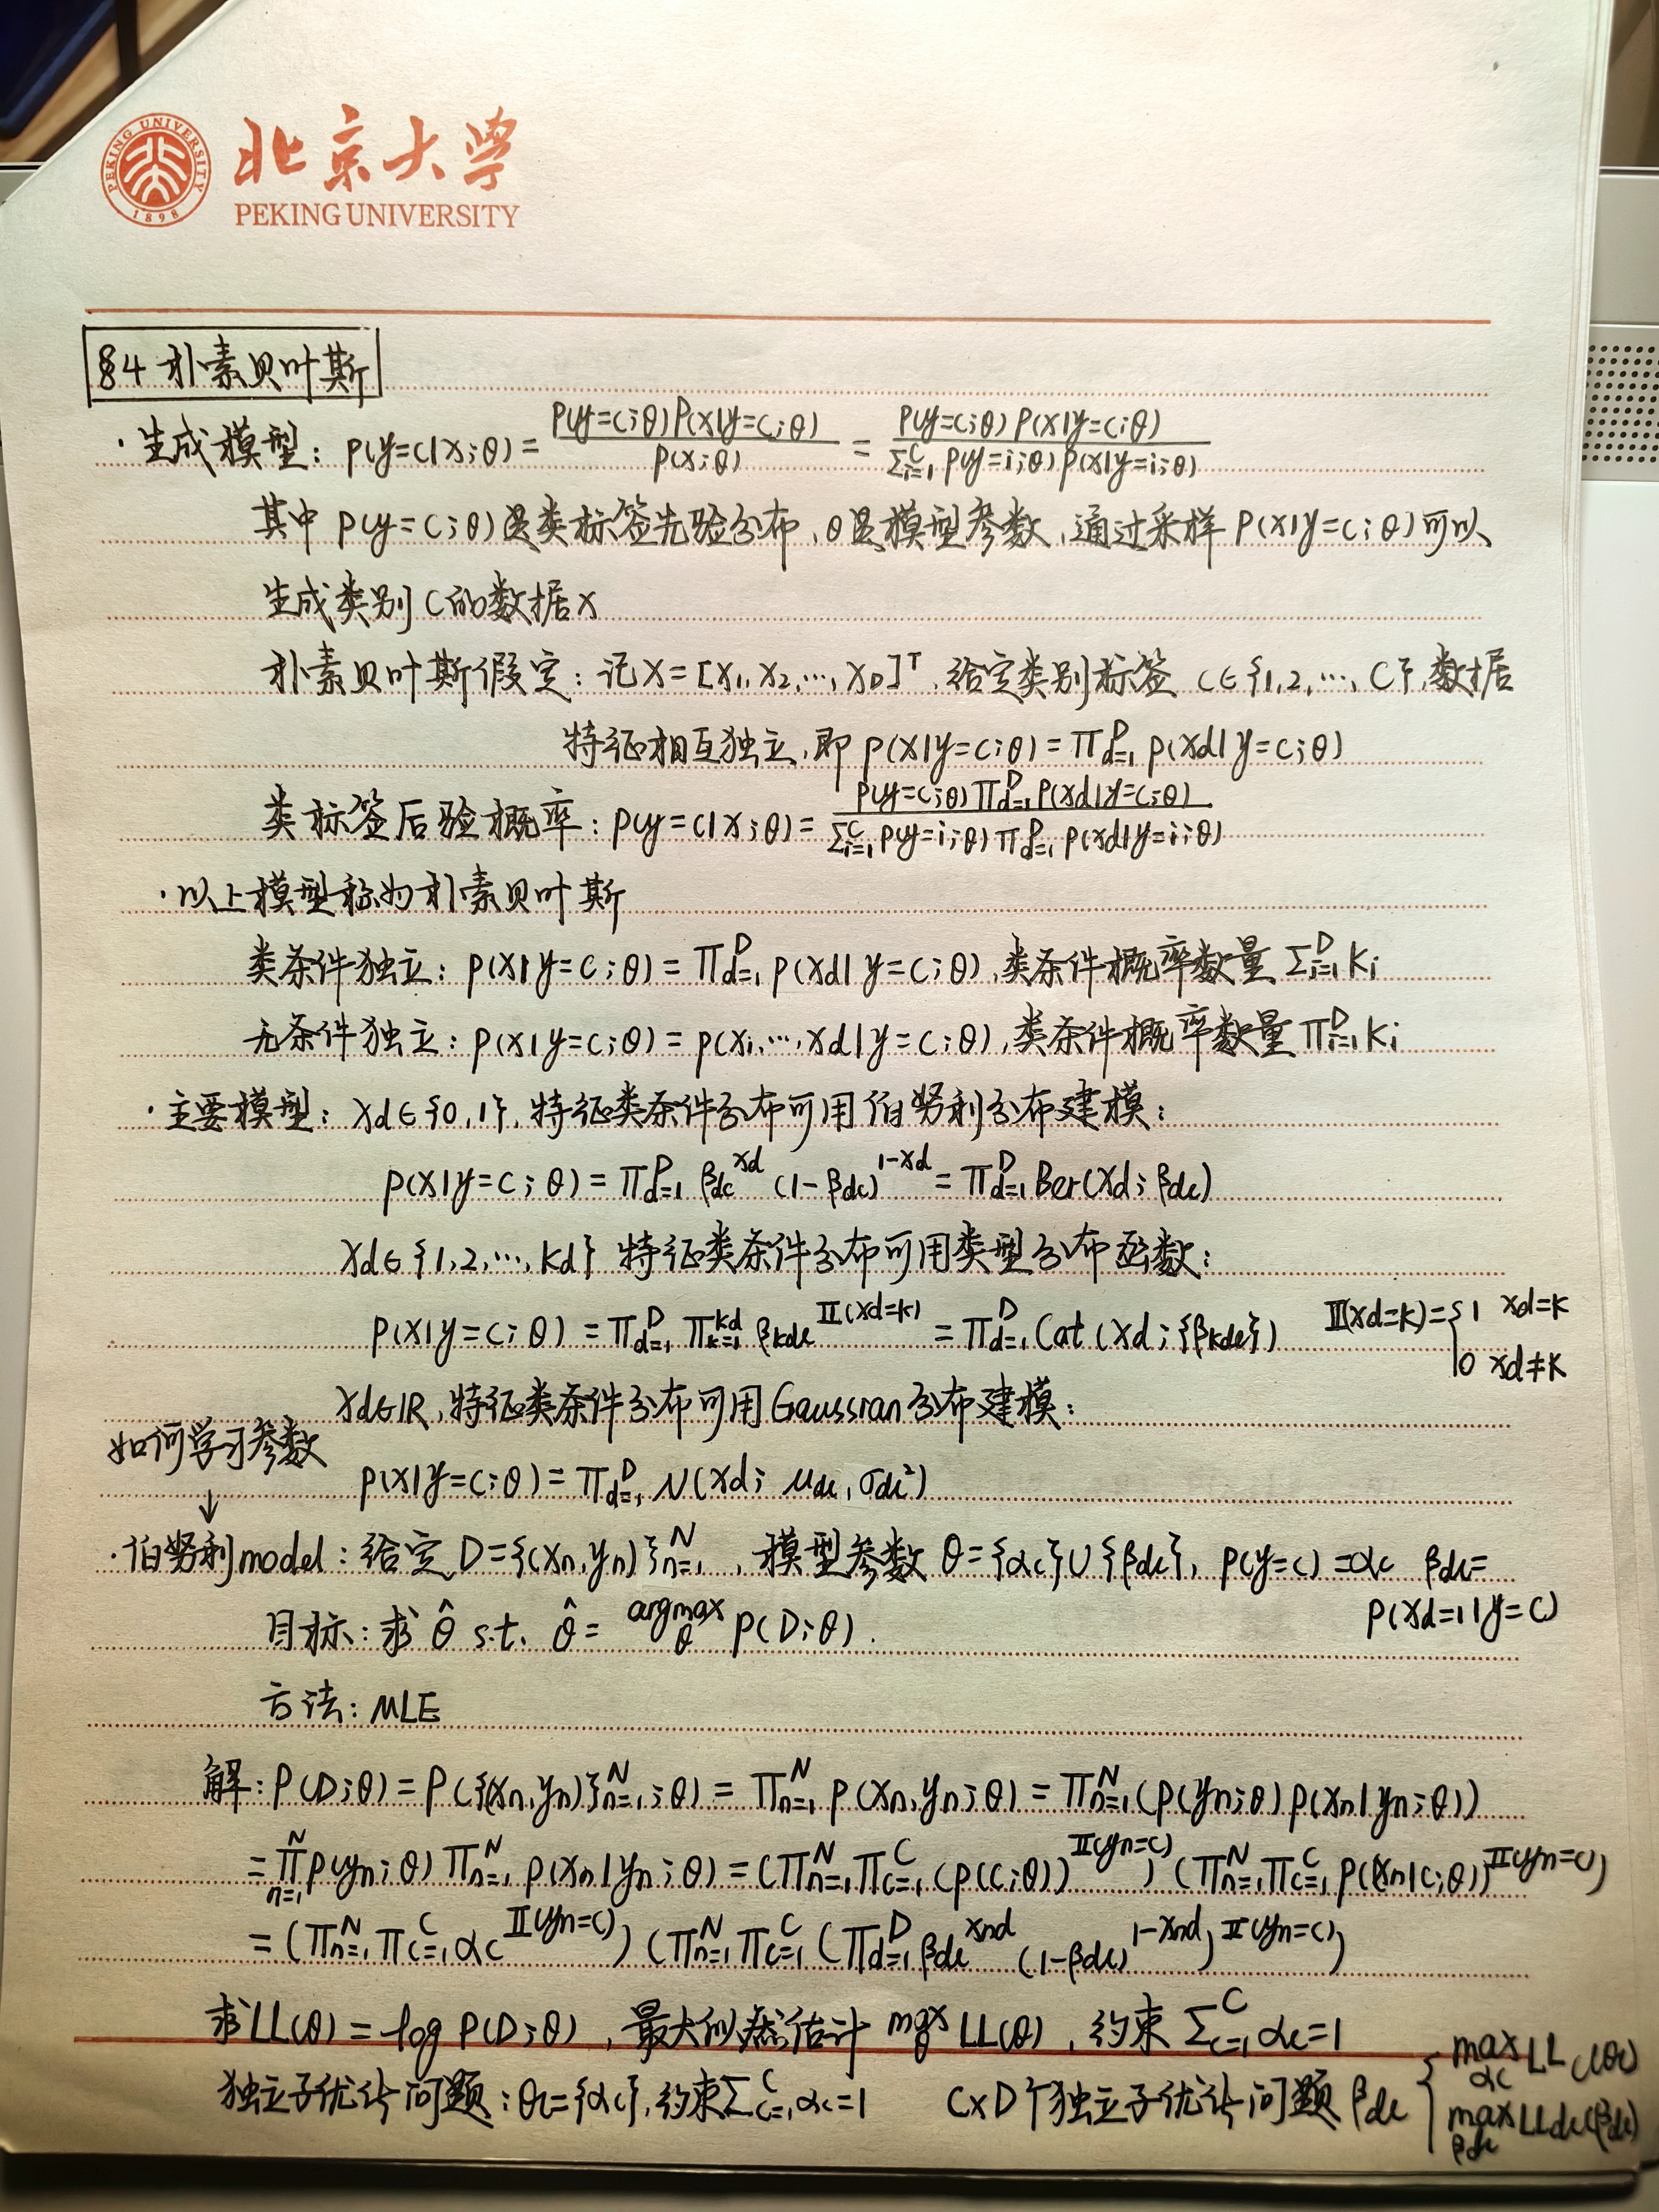 PEKING UNIVERSITY
1898
北京大学
PEKING UNIVERSITY
§4 朴素贝叶斯
·生成模型: p(y=c|x;θ) = p(y=c;θ)p(x|y=c;θ) / p(x;θ) = p(y=c;θ)p(x|y=c;θ) / Σ_{i=1}^C p(y=i;θ)p(x|y=i;θ)
其中 p(y=c;θ)是类标签先验分布,θ是模型参数,通过采样 p(x|y=c;θ)可以
生成类别C的数据x
朴素贝叶斯假定: 记X=[x₁,x₂,…,x_D]^T,给定类别标签 c∈{1,2,…,C},数据
特征相互独立,即 p(x|y=c;θ)=Π_{d=1}^D p(xd|y=c;θ)
类标签后验概率: p(y=c|x;θ)= p(y=c;θ)Π_{d=1}^D p(xd|y=c;θ) / Σ_{i=1}^C p(y=i;θ)Π_{d=1}^D p(xd|y=i;θ)
·以上模型称为朴素贝叶斯
类条件独立: p(x|y=c;θ)=Π_{d=1}^D p(xd|y=c;θ),类条件概率数量 Σ_{i=1}^D Ki
无条件独立: p(x|y=c;θ)=p(x₁,…,xd|y=c;θ),类条件概率数量Π_{i=1}^D Ki
·主要模型: xd∈{0,1},特征类条件分布可用伯努利分布建模:
p(x|y=c;θ)=Π_{d=1}^D βdc^{xd} (1-βdc)^{1-xd} = Π_{d=1}^D Ber(xd;βdc)
xd∈{1,2,…,Kd} 特征类条件分布可用类型分布函数:
p(x|y=c;θ) = Π_{d=1}^D Π_{k=1}^{kd} βkdc^{𝕀(xd=k)} = Π_{d=1}^D Cat(xd;{βkdc}) 𝕀(xd=k)={1 xd=k
0 xd≠k
xd∈ℝ,特征类条件分布可用Gaussian分布建模:
如何学习参数
↓
p(x|y=c;θ)=Π_{d=1}^D N(xd; μdc,σdc²)
·伯努利model: 给定D={(xn,yn)}_{n=1}^N,模型参数θ={αc}∪{βdc}, p(y=c)=αc βdc=
p(xd=1|y=c)
目标: 求 θ̂ s.t. θ̂ = argmax_θ P(D;θ).
方法: MLE
解: P(D;θ)=P({(xn,yn)}_{n=1}^N;θ)=Π_{n=1}^N p(xn,yn;θ)=Π_{n=1}^N(p(yn;θ)p(xn|yn;θ))
=Π_{n=1}^N p(yn;θ)Π_{n=1}^N p(xn|yn;θ)=(Π_{n=1}^N Π_{c=1}^C (p(c;θ))^{𝕀(yn=c)})(Π_{n=1}^N Π_{c=1}^C p(xn|c;θ))^{𝕀(yn=c)}
=(Π_{n=1}^N Π_{c=1}^C αc^{𝕀(yn=c)})(Π_{n=1}^N Π_{c=1}^C (Π_{d=1}^D βdc^{xnd}(1-βdc)^{1-xnd})^{𝕀(yn=c)})
求LL(θ)=log P(D;θ),最大似然估计 max_θ LL(θ),约束 Σ_{c=1}^C αc=1
独立子优化问题:θc={αc},约束Σ_{c=1}^C αc=1 C×D个独立子优化问题βdc { max_{αc} LLc(θc)
max_{βdc} LLdc(βdc)